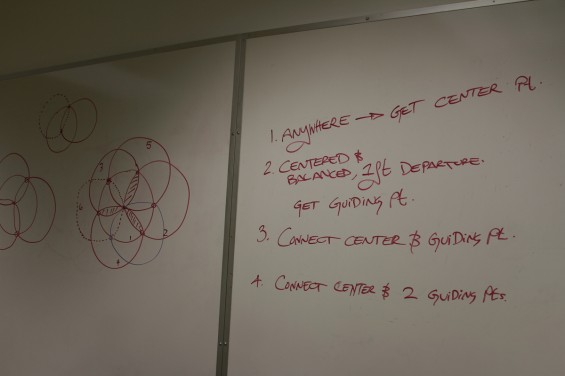 1. ANYWHERE → GET CENTER Pt.
2. CENTERED &
BALANCED, 1ft DEPARTURE.
GET GUIDING Pt.
3. CONNECT CENTER & GUIDING Pt.
4. CONNECT CENTER & 2 GUIDING Pts.
5
3
6
1
2
4